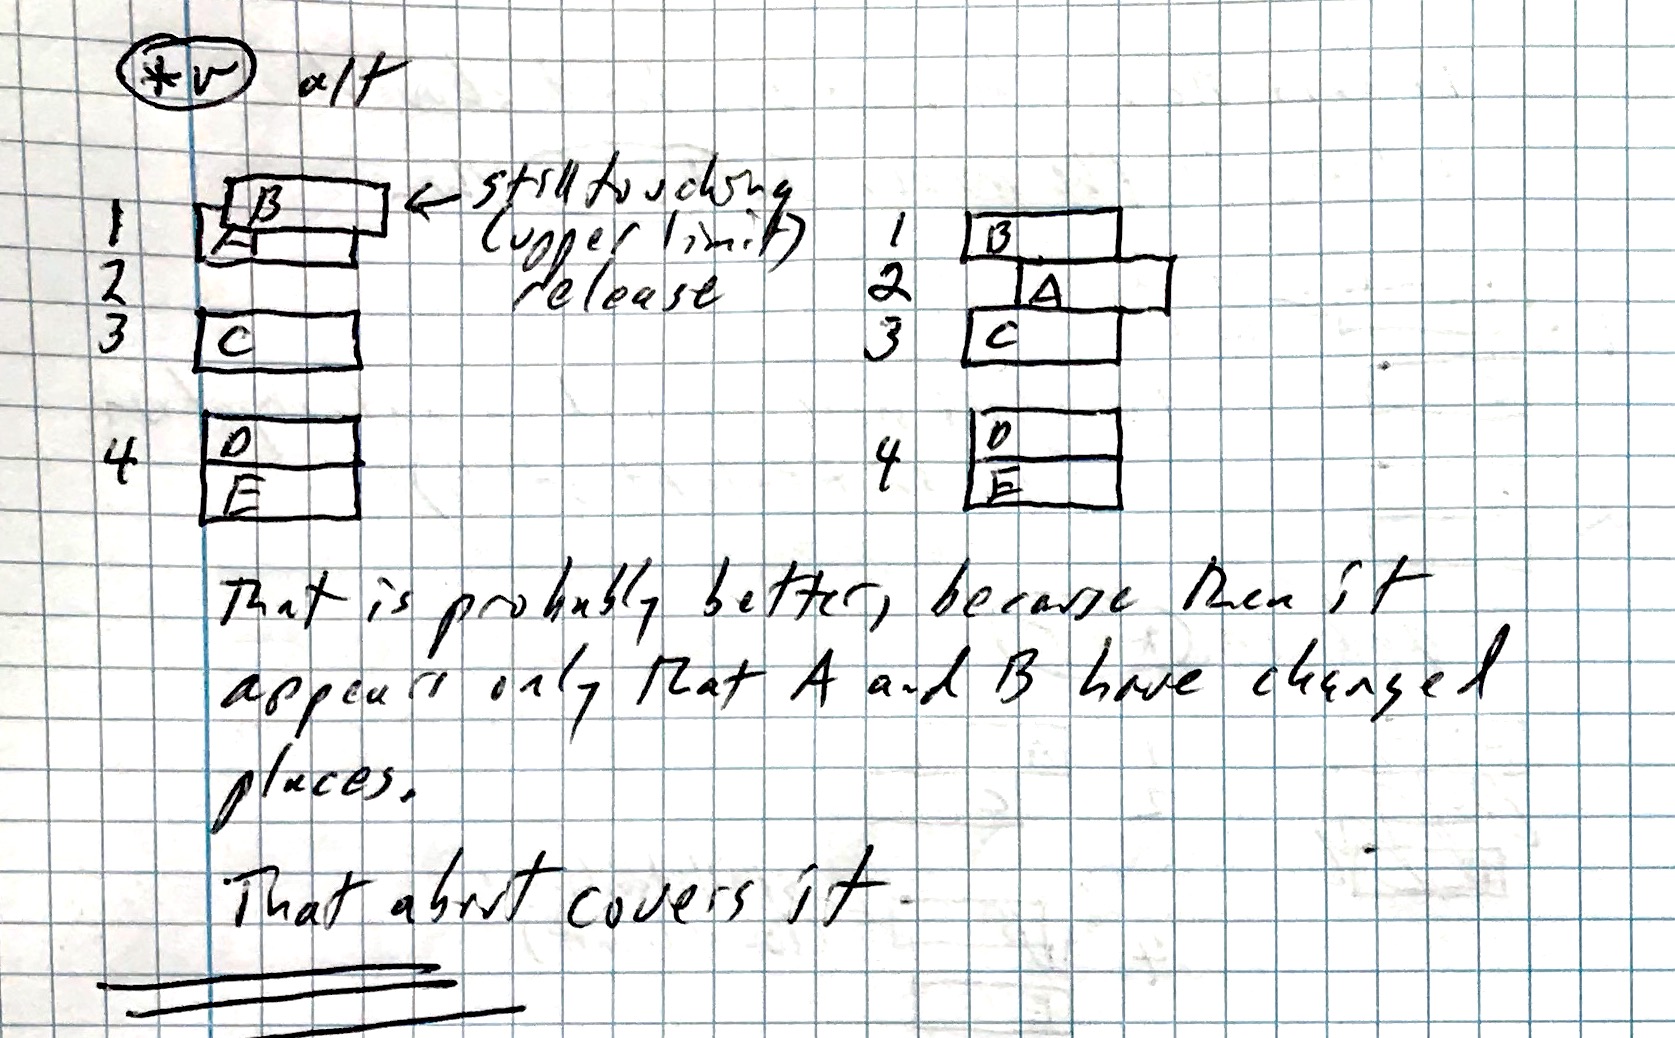 *v alt
B ← still touching
1 (upper limit) 1 B
2 release 2 A
3 C 3 C
4 D 4 D
E E
That is probably better, because then it
appears only that A and B have changed
places.
That about covers it.